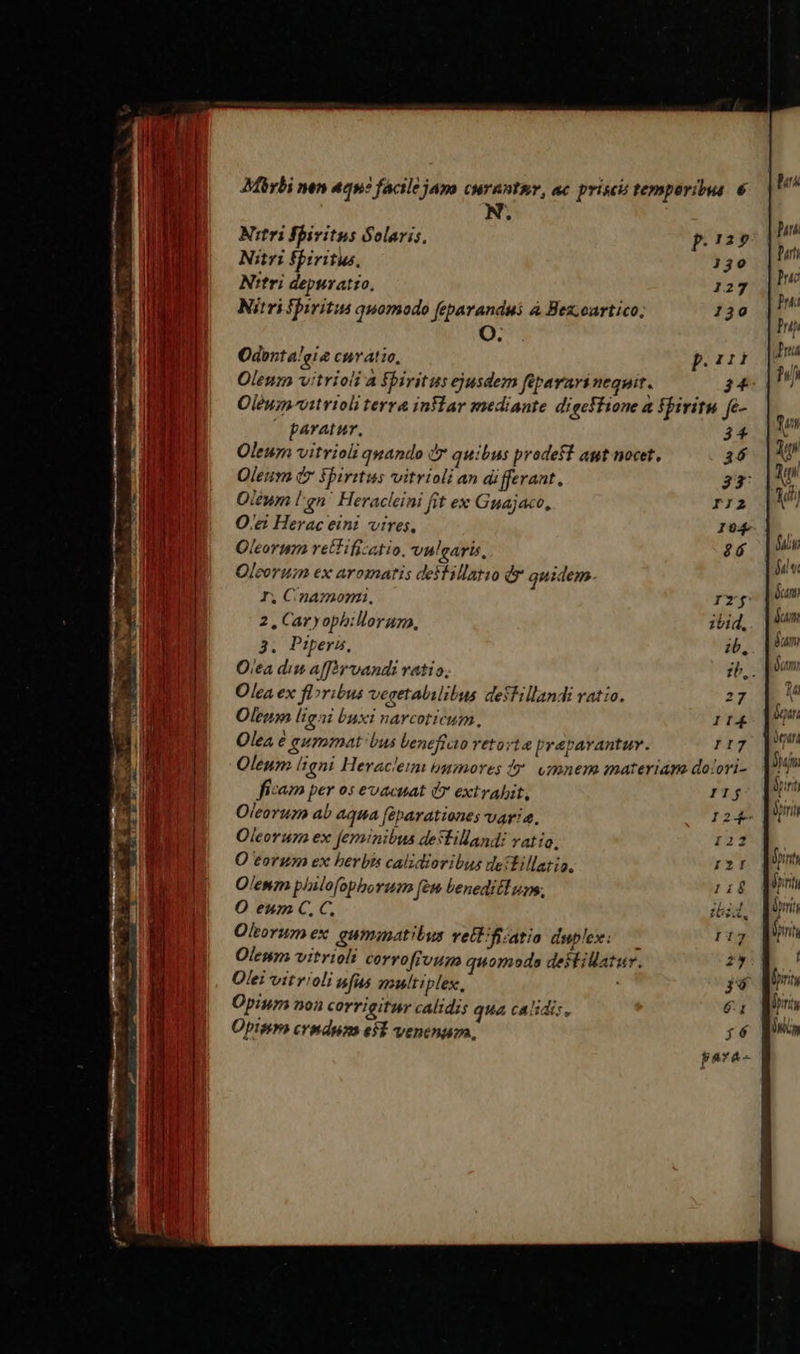 Morbi non aquè facilè jam curantur, ac priscis temporibus 6
N.
Nitri Spiritus Solaris. p. 129
Nitri Spiritus. 130
Nitri depuratio. 127
Nitri Spiritus quomodo separandus à Bezoartico. 130
O.
Odontalgiæ curatio. p. 111
Oleum vitrioli à Spiritus ejusdem separari nequit. 34
Oleum vitrioli terræ instar mediante digestione à Spiritu se-
paratur. 34
Oleum vitrioli quando & quibus prodest aut nocet. 36
Oleum & Spiritus vitrioli an differant. 33
Oleum lign Heracleini fit ex Guajaco. 112
Olei Heracleini vires. 104
Oleorum rectificatio vulgaris. 86
Oleorum ex aromatis destillatio & quidem
1, Cinamomi, 125
2, Caryophillorum, ibid.
3. Piperis, ib.
Olea diu asservandi ratio. ib.
Olea ex floribus vegetabilibus destillandi ratio. 27
Oleum ligni buxi narcoticum. 114
Olea è gummatibus beneficio retortæ præparantur. 117
Oleum ligni Heracleini humores & omnem materiam dolori-
ficam per os evacuat & extrahit. 115
Oleorum ab aqua separationes variæ. 124
Oleorum ex seminibus destillandi ratio. 122
Oleorum ex herbis calidioribus destillatio. 121
Oleum philosophorum seu benedictum. 118
Oleum C. C. ibid.
Oleorum ex gummatibus rectificatio duplex. 117
Oleum vitrioli corrosivum quomodo destillatur. 29
Olei vitrioli usus multiplex. 36
Opium non corrigitur calidis qua calidis. 61
Opium crudum est venenum. 56
para-